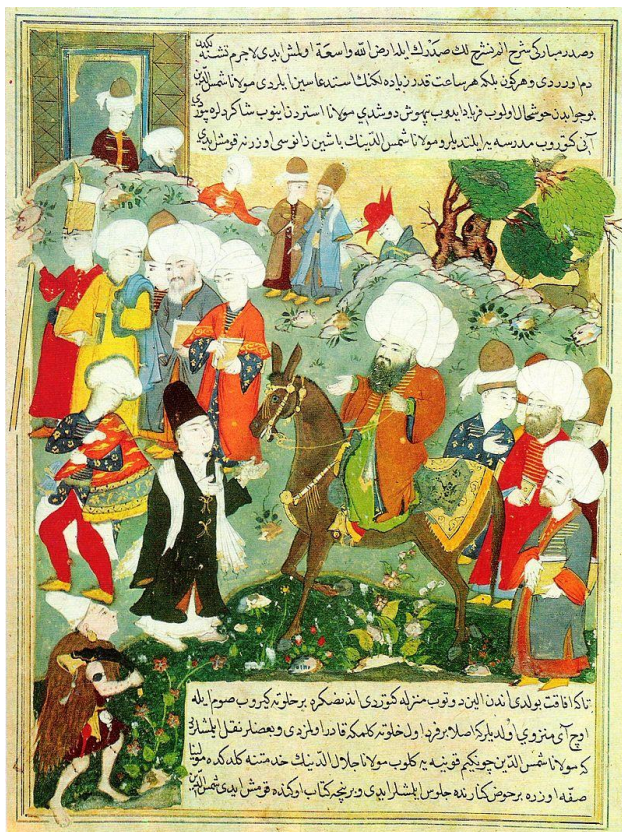 وصدر مباركى شرح الم نشرح لك صدرك ايله ارض الله واسعة اولمش ايدى لاجرم تشنه
دم اورردى و هركون بلكه هر ساعت قدر زياده لكنك استدعاسين ايلردى مولانا شمس الدين
بو جوابدن خوشحال اولوب فرياد ايدوب بيهوش دوشدى مولانا استردن اينوب شاكردلره بيوردى
آنى كتوروب مدرسه يه ايلتديلر و مولانا شمس الدينك باشين زانوسى اوزرنه قومش ايدى
تاكه افاقت بولدى اندن الين دوتوب منزله كوتردى اندنصكره بر خلوته كيروب صوم ايله
اوچ آى منزوى اولديلر كه اصلا بر فرد اول خلوته كلمكه قادر اولمزدى و بعضلر نقل ايلمشلر
كه مولانا شمس الدين چونكيم قونيه يه كلوب مولانا جلال الدينك خدمتنه كلدكده مولينا
صفه اوزره بر حوض كنارنده جلوس ايلمشلر ايدى و برنچه كتاب اوكنده قومش ايدى شمس الدين